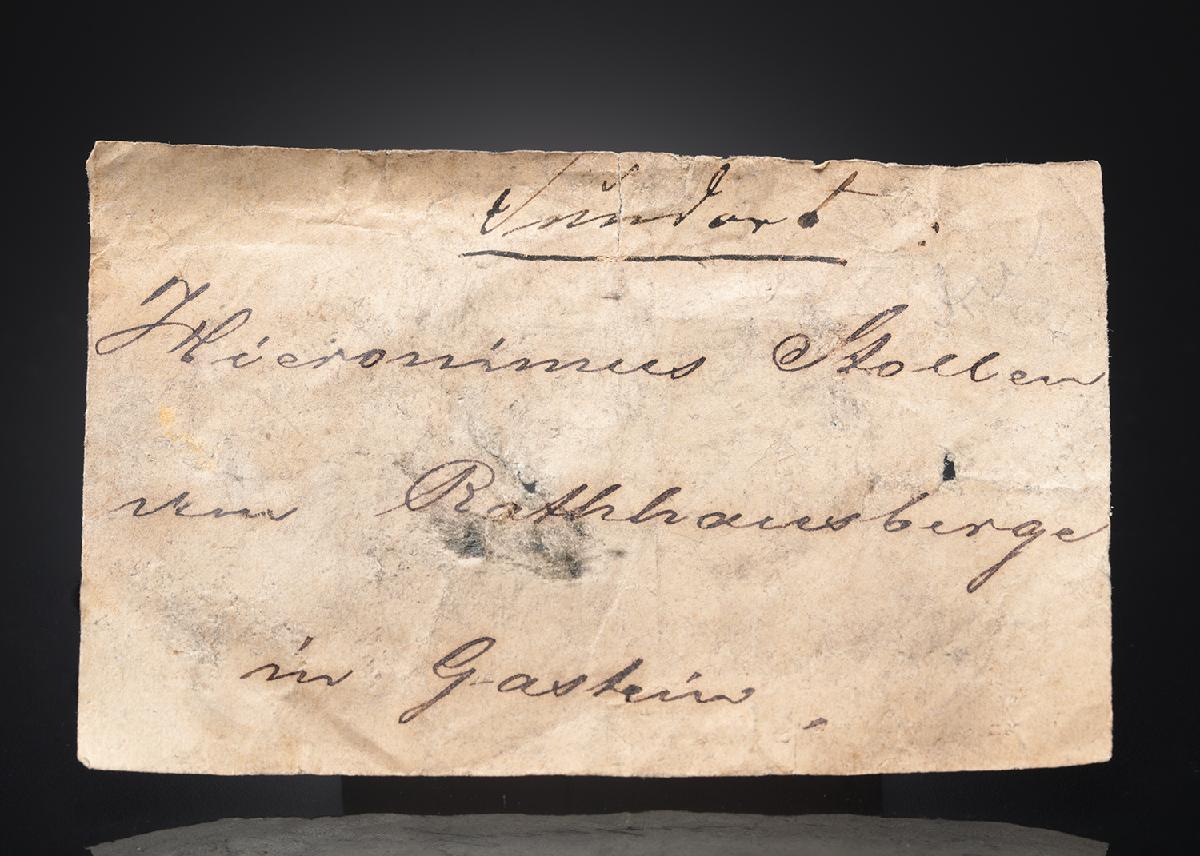 Fundort :
Hieronimus Stollen
vom Rathhausberge
in Gastein